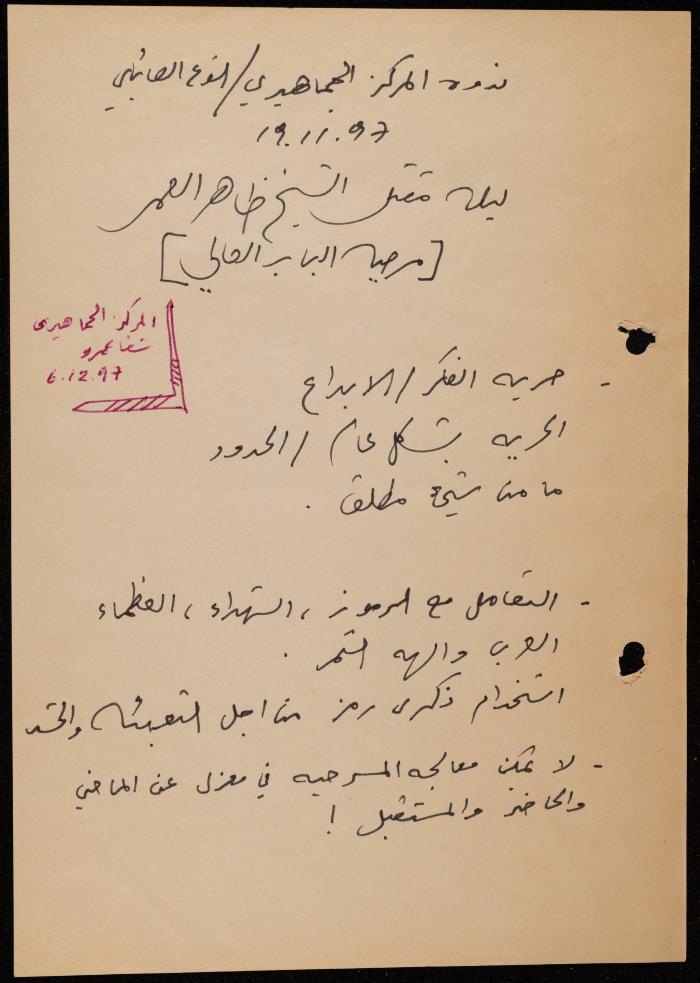 ندوه المركز الجماهيري /
19.11.97
ليله مقتل الشيخ ظاهر العمر
[مرحيه الباب العالي]
المركز الجماهيري
شفاعمرو
6.12.97
- حريه الفكر / الابداع
الحريه بشكل عام / الحدود
ما من شيئ مطلق .
- التعامل مع الرموز ، الشهداء ، العظماء
العرب والهه التمر .
استخدام ذكرى رمز من اجل التعبئه والحشد
- لا يمكن معالجه المسرحيه في معزل عن الماضي
والحاضر والمستقبل !